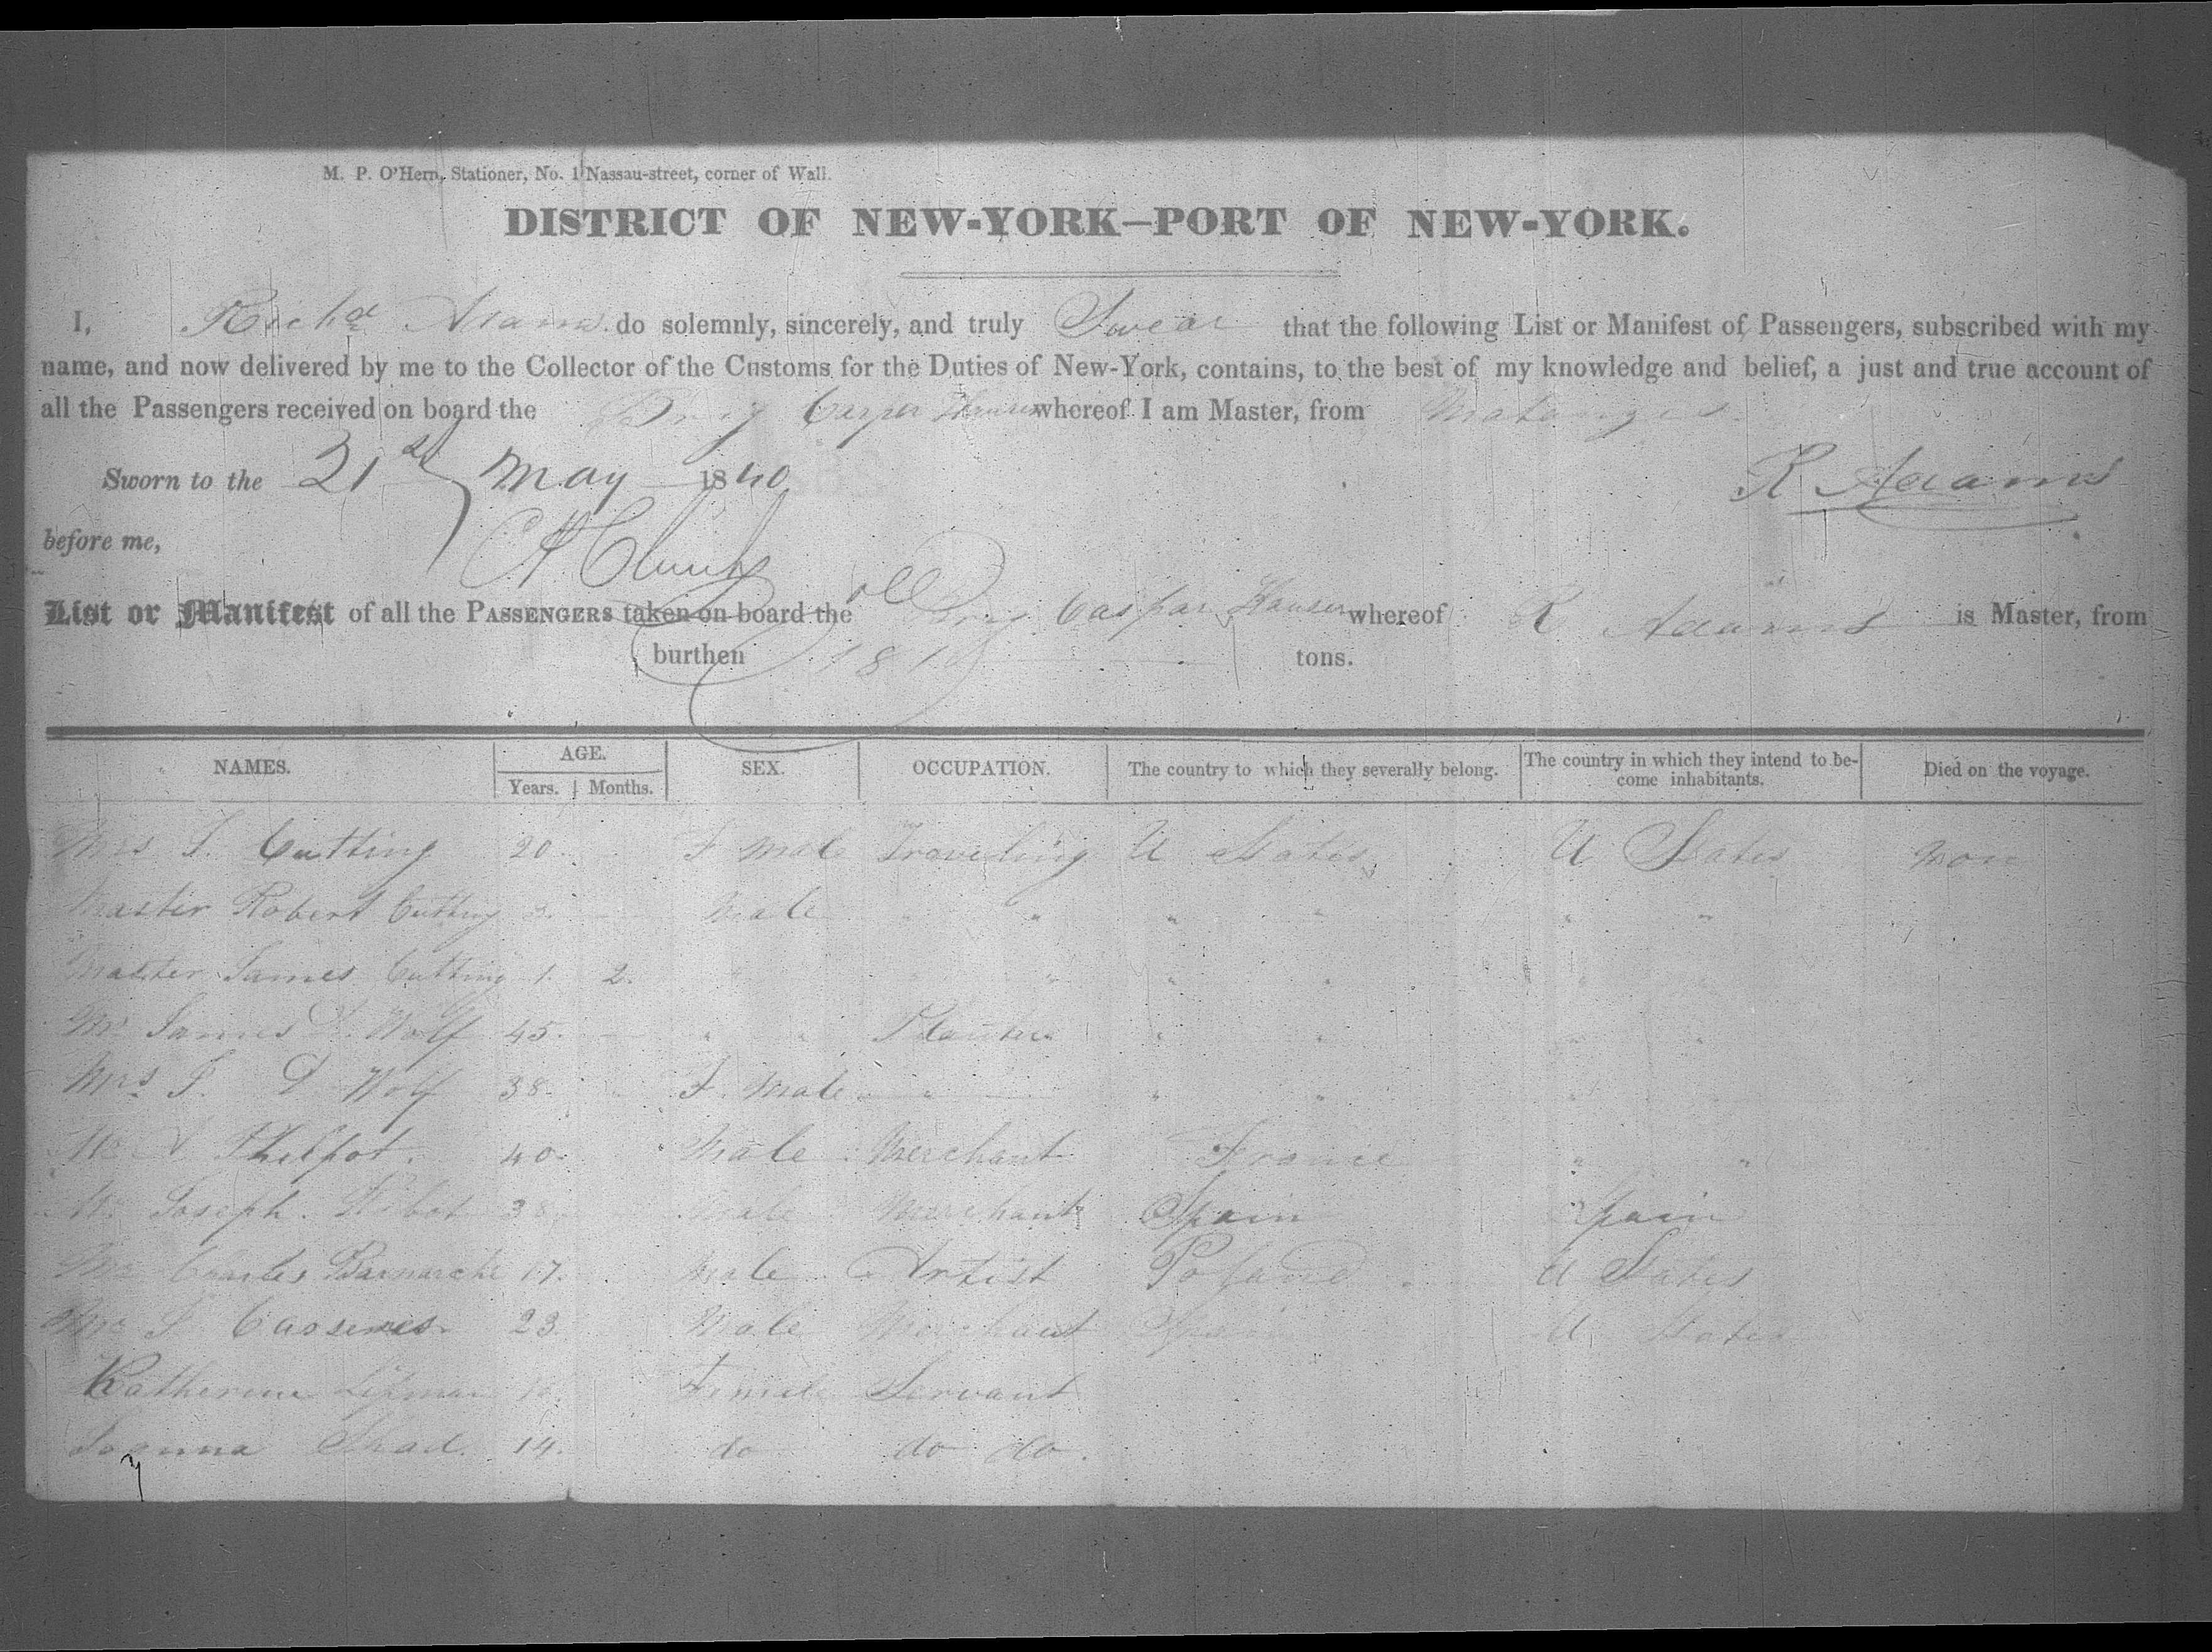 M. P. O'Hern, Stationer, No. 1 Nassau-street, corner of Wall.
DISTRICT OF NEW-YORK—PORT OF NEW-YORK.
I, Richd Adams do solemnly, sincerely, and truly Swear that the following List or Manifest of Passengers, subscribed with my
name, and now delivered by me to the Collector of the Customs for the Duties of New-York, contains, to the best of my knowledge and belief, a just and true account of
all the Passengers received on board the Brig Casper Hauser whereof I am Master, from Matanzas
Sworn to the 21st May 1840
R Adams
before me,
List or Manifest of all the PASSENGERS taken on board the Brig Caspar Hauser whereof R Adams is Master, from
burthen tons.
NAMES. AGE. SEX. OCCUPATION. The country to which they severally belong. The country in which they intend to be- Died on the voyage.
Years. Months. come inhabitants.
Mrs J. Cutting 20 F male Traveling U States U States non
Master Robert Cutting 3 Male " " " " " "
Master James Cutting 1. 2. " " " "
Mr James D. Wolf 45. " " Planter " " " "
Mrs J. D Wolf 38 F. Male " " "
Mr Philpot. 40 Male Merchant France " "
Mr Joseph 38 Male Merchant Spain Spain
Mr Charles 17. Male Artist Poland U States
Mr J 23 Male Merchant U States
Katherine Female Servant
Shad. 14. do do do.